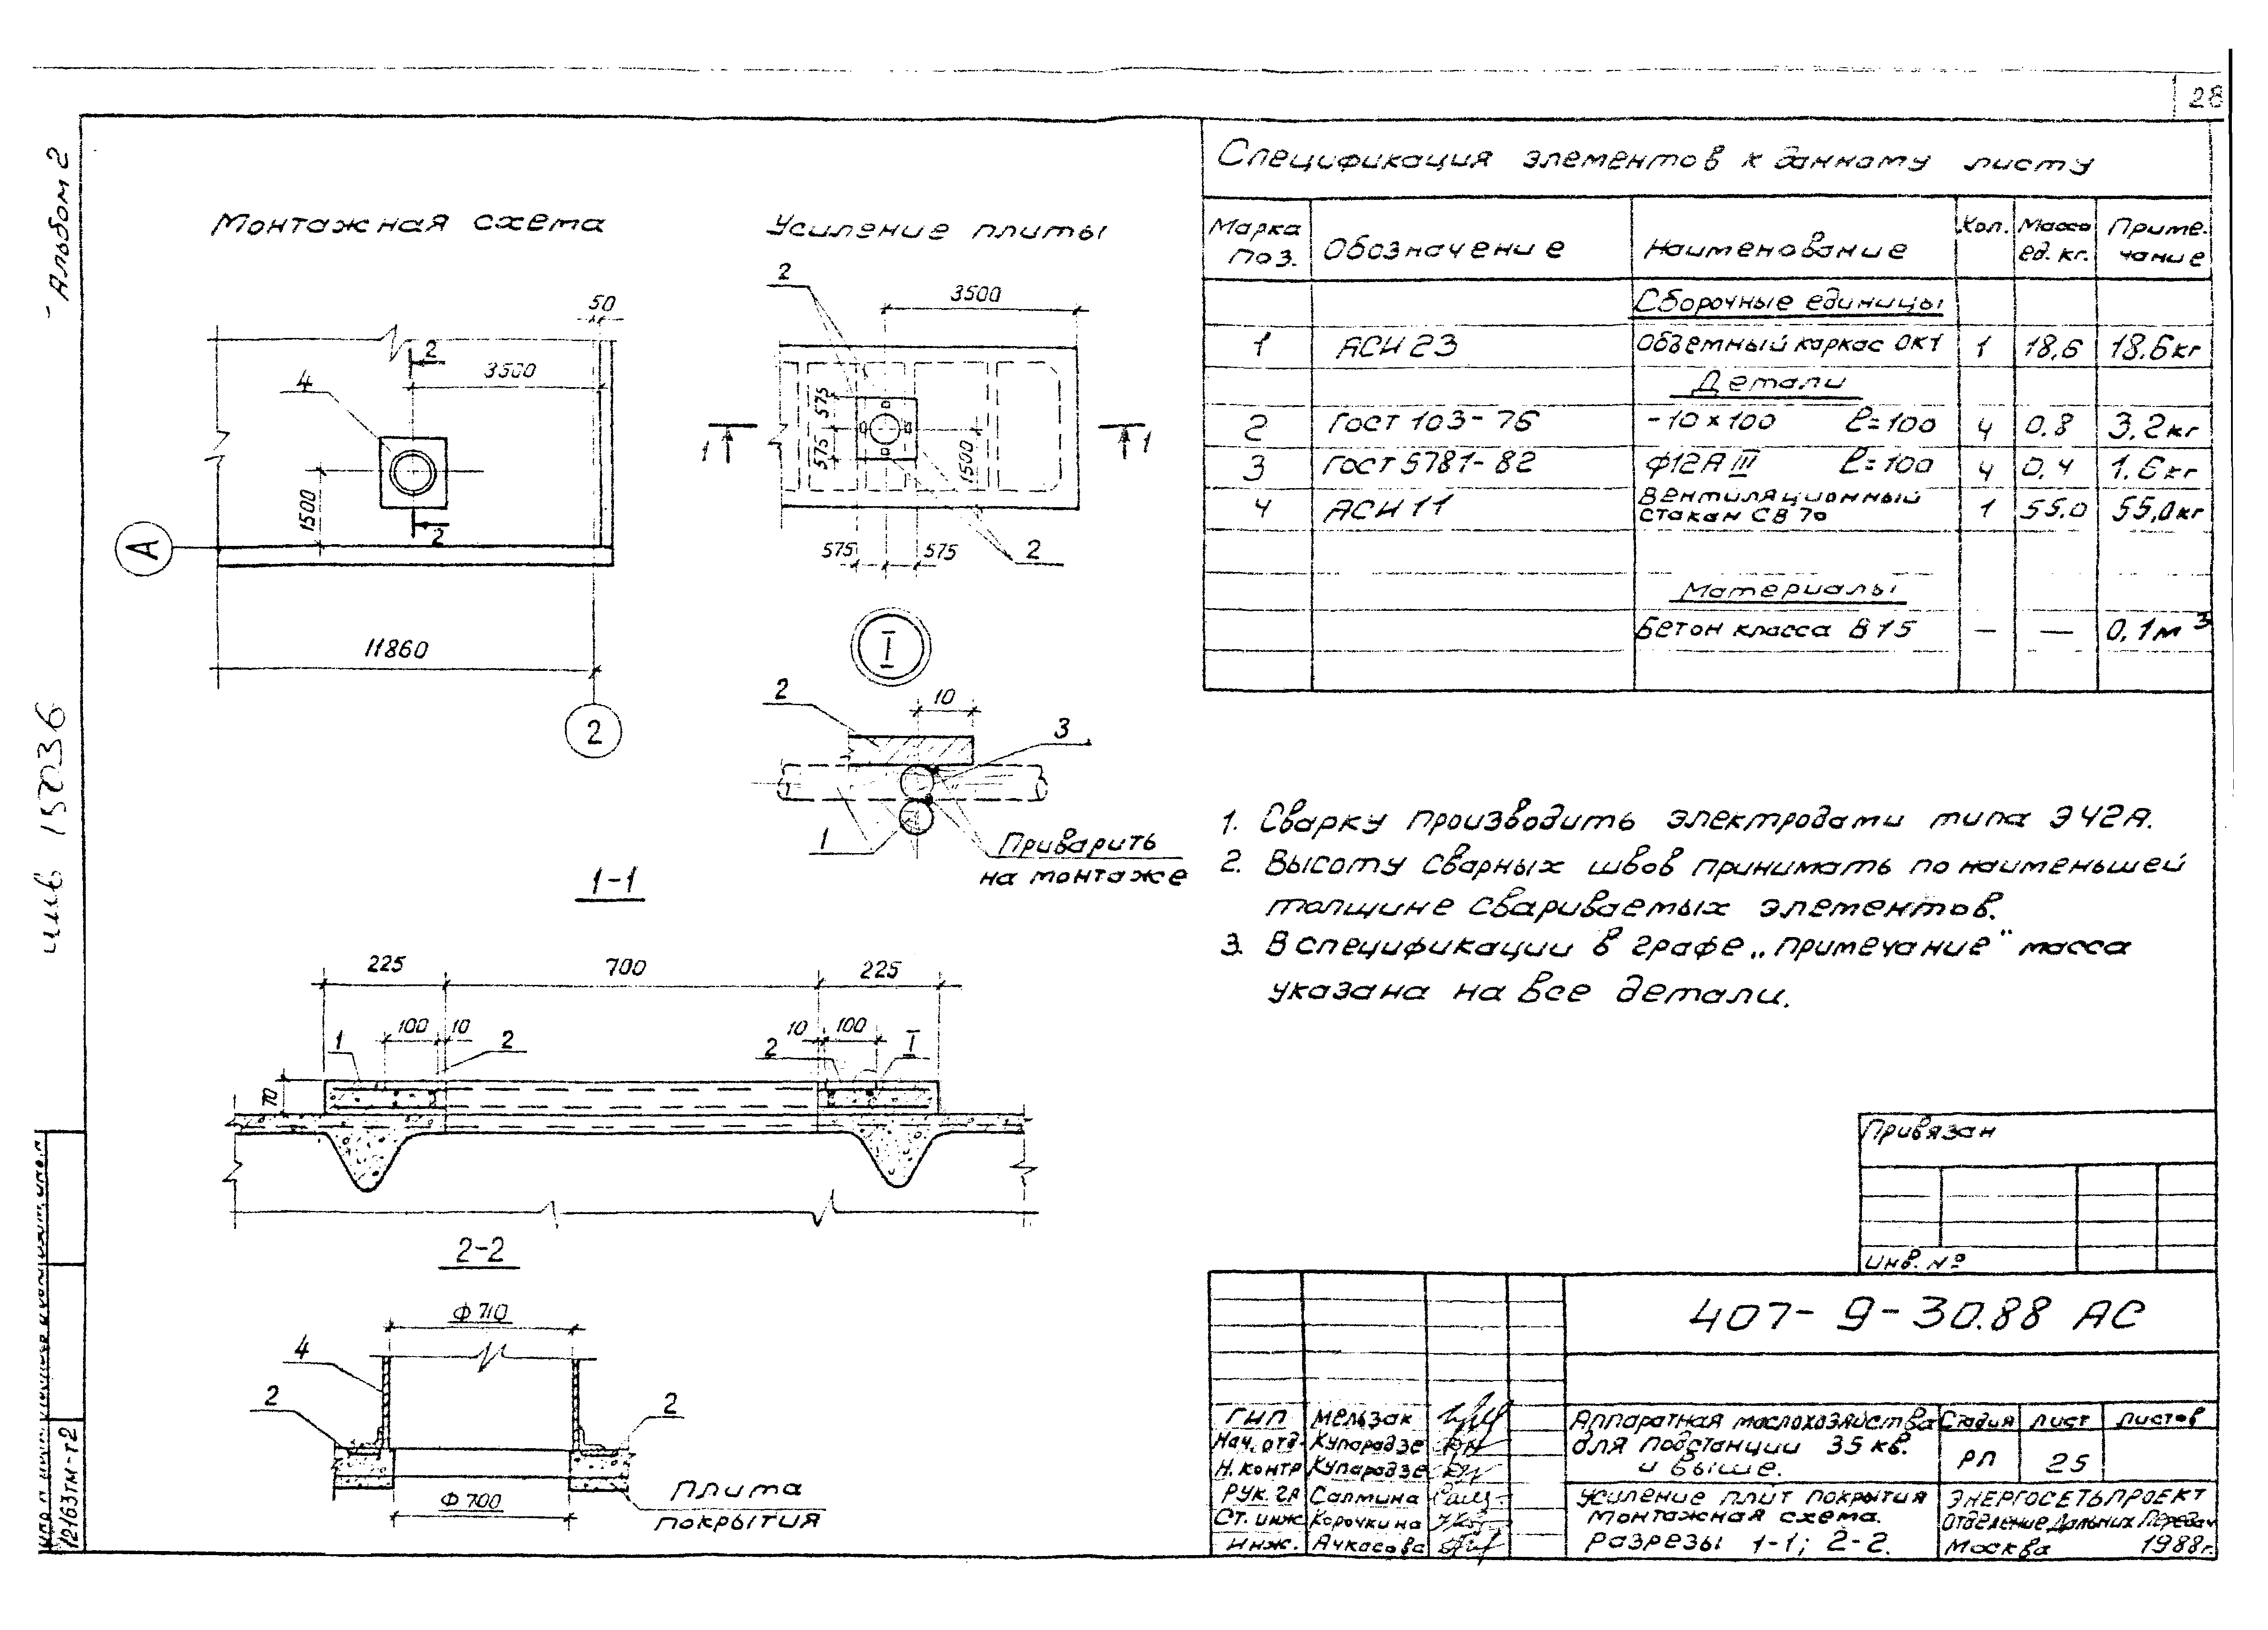 28
Альбом 2
инв 15036
12163тм-т2
Монтажная схема
50
2
3500
4
1500
2
А
11860
2
Усиление плиты
2
3500
575
575
1
1
1500
575
575
2
I
2
10
3
1
Приварить
на монтаже
1-1
225
700
225
100
10
10
100
1
2
2
I
70
2-2
Ф710
4
2
2
Ф700
Плита
покрытия
Спецификация элементов к данному листу
Марка поз. Обозначение Наименование Кол. Масса ед. кг. Приме-чание
Сборочные единицы
1 АСИ 23 Объемный каркас ОК1 1 18,6 18.6кг
Детали
2 ГОСТ 103-76 -10×100 ℓ=100 4 0.8 3.2кг
3 ГОСТ 5781-82 ф12АIII ℓ=100 4 0,4 1.6кг
4 АСИ 11 Вентиляционный стакан СВ70 1 55.0 55,0кг
Материалы
Бетон класса В15 — — 0,1м³
1. Сварку производить электродами типа Э42А.
2. Высоту сварных швов принимать по наименьшей
толщине свариваемых элементов.
3. В спецификации в графе „примечание" масса
указана на все детали.
Привязан
Инв. №
407-9-30.88 АС
ГИП Мельзак
Нач. отд. Купарадзе
Н. контр Купарадзе
Рук. гр Салтина
Ст. инж Корочкина
Инж. Ачкасова
Аппаратная маслохозяйства
для подстанции 35 кв.
и выше.
Стадия Лист Листов
РП 25
Усиление плит покрытия
Монтажная схема.
Разрезы 1-1; 2-2.
ЭНЕРГОСЕТЬПРОЕКТ
Отделение Дальних Передач
Москва 1988г.